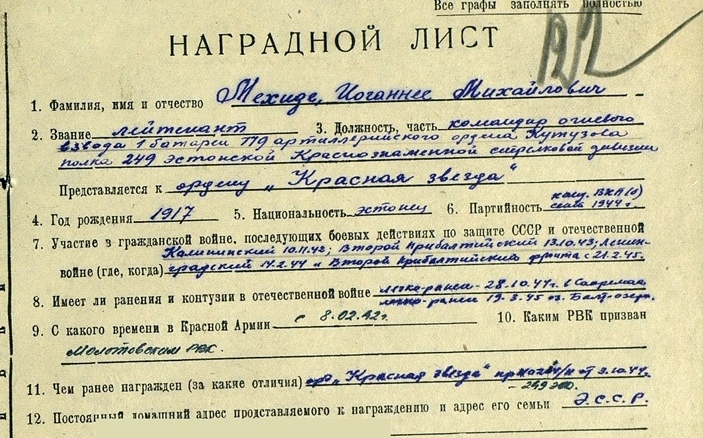 Все графы заполнять полностью
НАГРАДНОЙ ЛИСТ
1. Фамилия, имя и отчество Мехиде, Иоганнес Михайлович
2. Звание лейтенант 3. Должность, часть командир огневого
взвода 1 батареи 779 артиллерийского ордена Кутузова
полка 249 Эстонской Краснознаменной стрелковой дивизии
Представляется к ордену „Красная звезда"
4. Год рождения 1917 5. Национальность эстонец 6. Партийность канд. ВКП(б)
1944 г.
7. Участие в гражданской войне, последующих боевых действиях по защите СССР и отечественной
Калининский 10.11.42; Второй Прибалтийский 13.10.43; Ленин-
войне (где, когда) градский 14.2.44 и Второй Прибалтийский фронта с 21.2.45.
8. Имеет ли ранения и контузии в отечественной войне легко-ранен - 28.10.44 г. в
легко-ранен 19.3.45
9. С какого времени в Красной Армии с 8.02.42 г. 10. Каким РВК призван
Молотовским РВК.
11. Чем ранее награжден (за какие отличия) „Красная звезда" от 9.10.44 г.
12. Постоянный домашний адрес представляемого к награждению и адрес его семьи Э.С.С.Р.